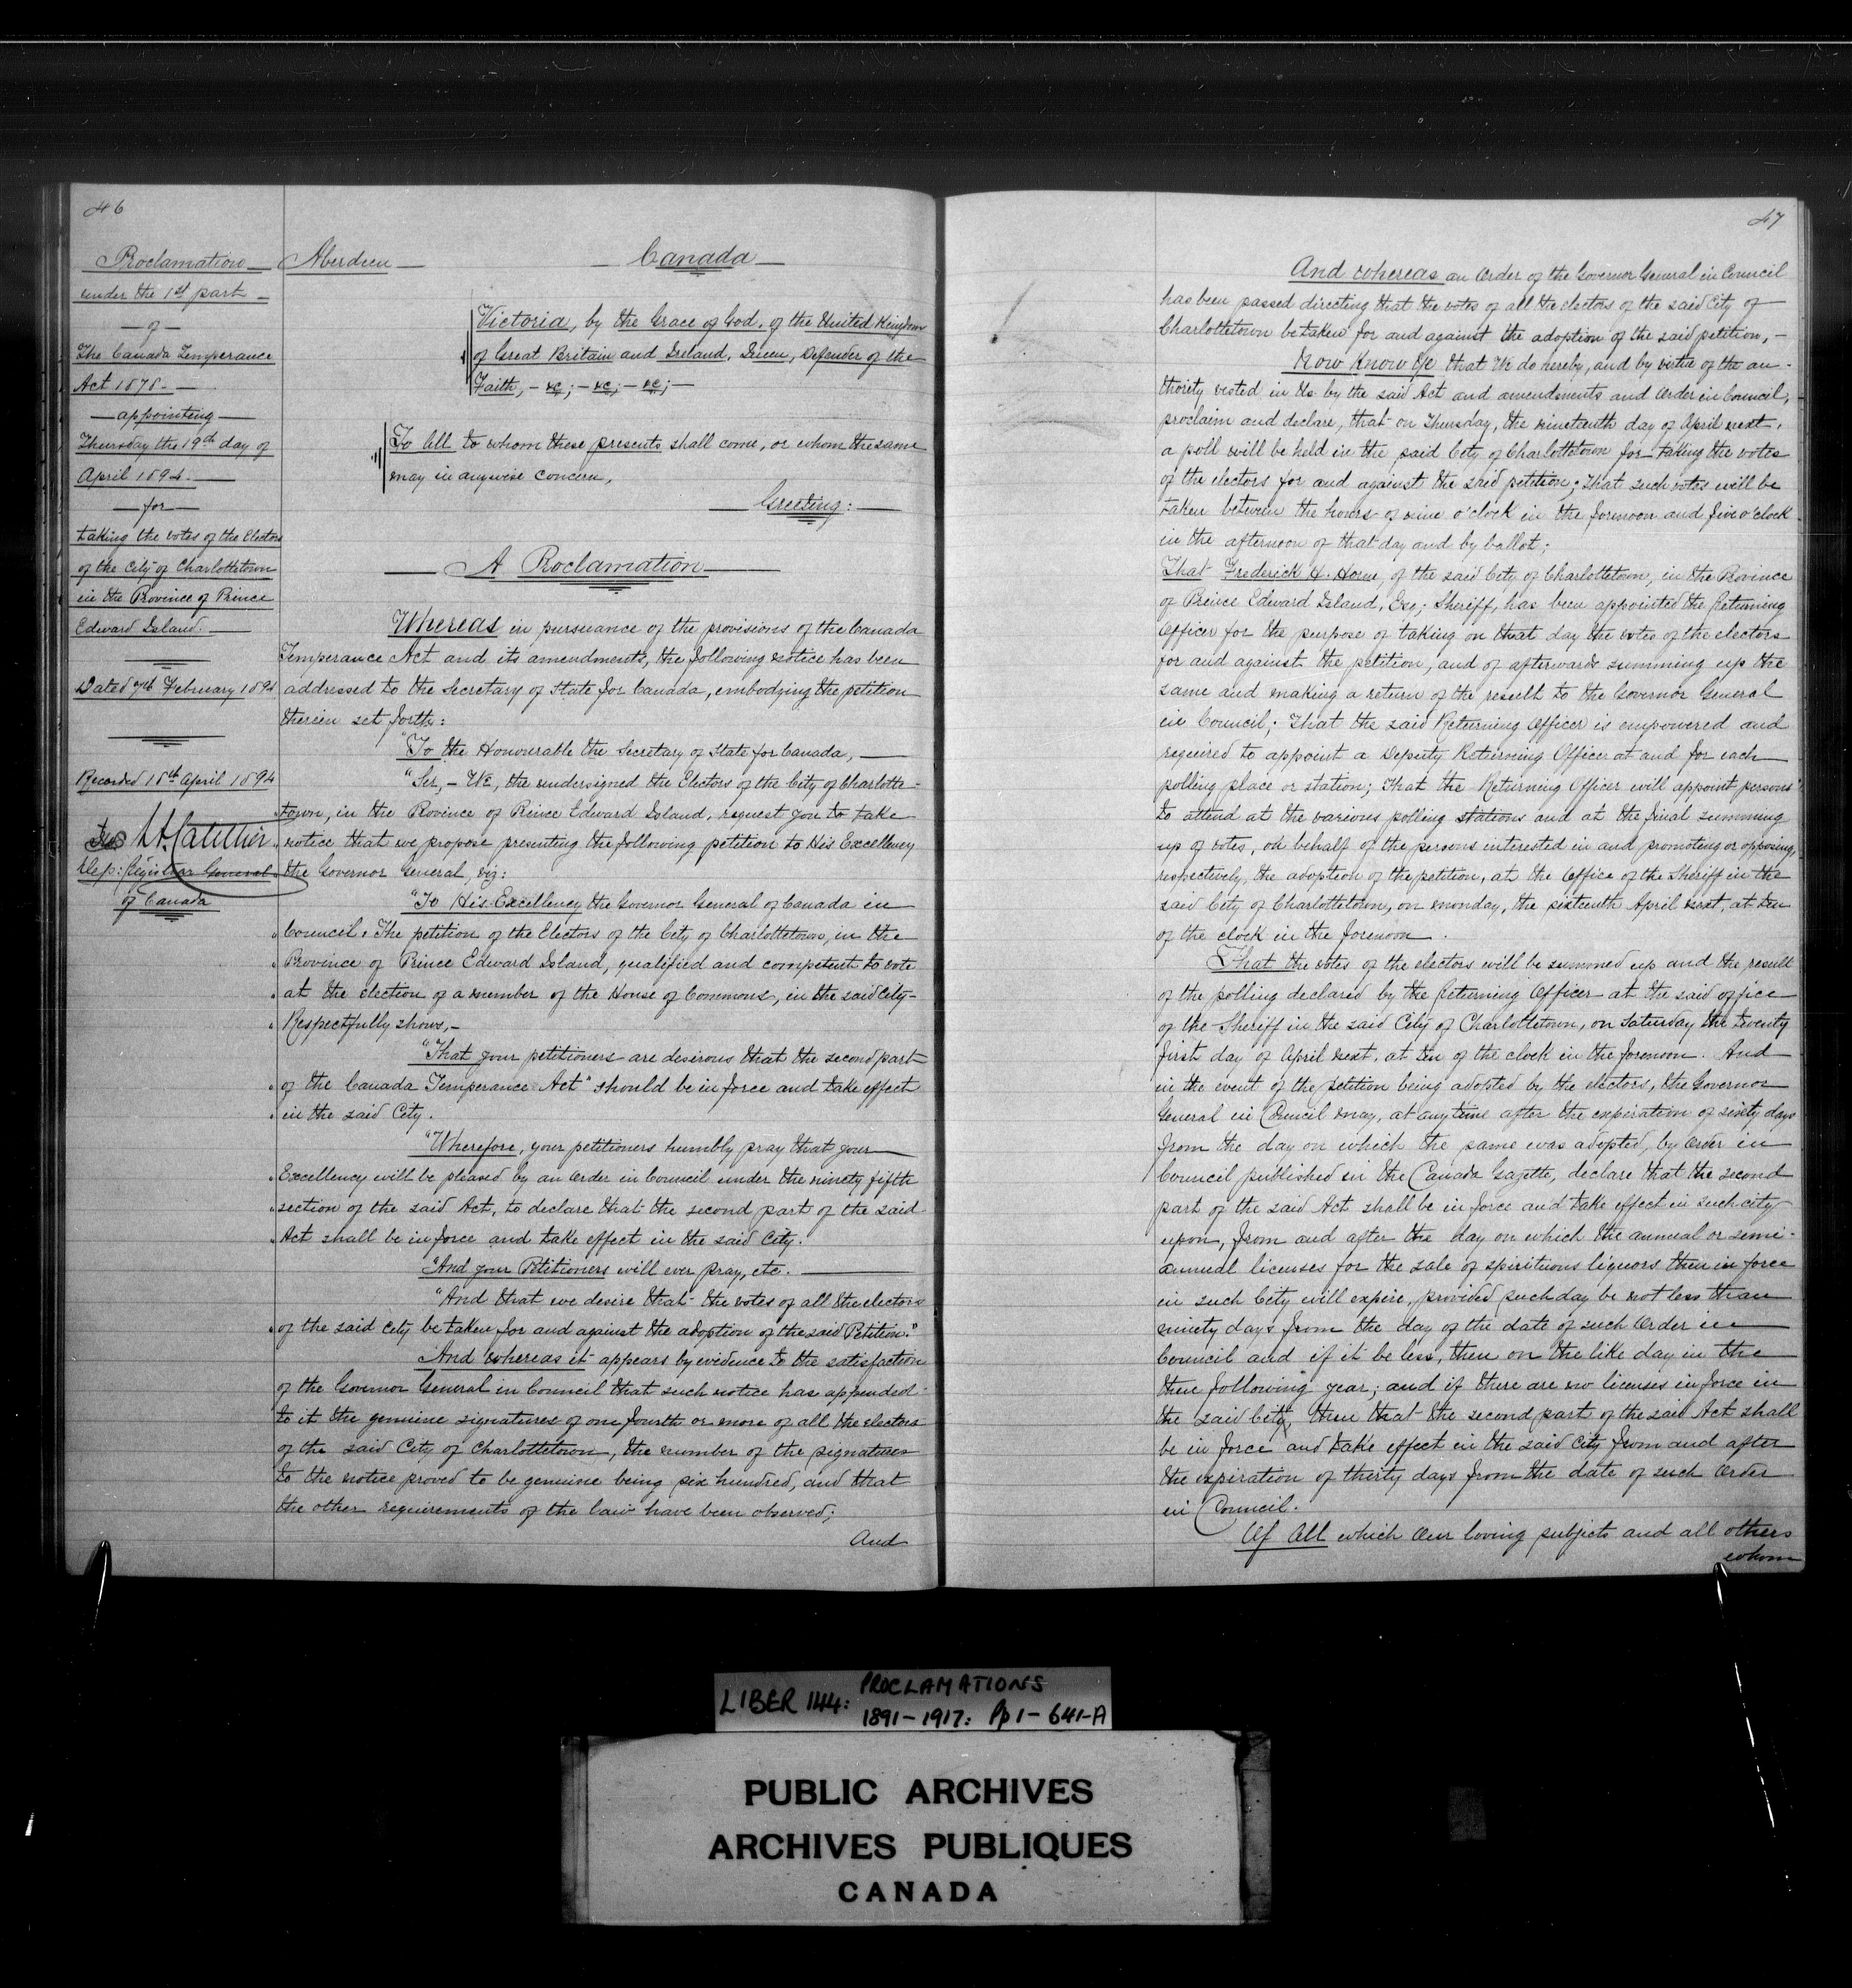 46
Proclamation
under the 1st part
of
The Canada Temperance
Act 1878.
appointing
Thursday the 19th day of
April 1894.
for
taking the votes of the Electors
of the City of Charlottetown
in the Province of Prince
Edward Island.
Dated 7th February 1894
Recorded 18th April 1894
Dep: Registrar General
of Canada
Aberdeen
Canada
Victoria, by the Grace of God, of the United Kingdom
of Great Britain and Ireland, Queen, Defender of the
Faith, - &c; - &c; - &c; -
To All to whom these presents shall come, or whom the same
may in anywise concern,
Greeting:
A Proclamation
Whereas in pursuance of the provisions of the Canada
Temperance Act and its amendments, the following notice has been
addressed to the Secretary of State for Canada, embodying the petition
therein set forth:
"To the Honourable the Secretary of State for Canada,
"Sir, - We, the undersigned the Electors of the City of Charlotte-
town, in the Province of Prince Edward Island, request you to take
notice that we propose presenting the following petition to His Excellency
the Governor General, viz:
"To His Excellency the Governor General of Canada in
Council. The petition of the Electors of the City of Charlottetown, in the
" Province of Prince Edward Island, qualified and competent to vote
" at the election of a member of the House of Commons, in the said City-
" Respectfully shows,-
"That your petitioners are desirous that the second part
" of the Canada Temperance Act" should be in force and take effect
" in the said City.
"Wherefore, your petitioners humbly pray that your
" Excellency will be pleased by an Order in Council under the ninety fifth
" section of the said Act, to declare that the second part of the said
" Act shall be in force and take effect in the said City.
"And your Petitioners will ever pray, etc.
"And that we desire that the votes of all the electors
" of the said City be taken for and against the adoption of the said Petition."
And whereas it appears by evidence to the satisfaction
of the Governor General in Council that such notice has appended
to it the genuine signatures of one fourth or more of all the electors
of the said City of Charlottetown, the number of the signatures
to the notice proved to be genuine being six hundred, and that
the other requirements of the law have been observed;
And
47
And whereas an Order of the Governor General in Council
has been passed directing that the votes of all the electors of the said City of
Charlottetown be taken for and against the adoption of the said petition, -
Now Know Ye that We do hereby, and by virtue of the au-
thority vested in Us by the said Act and amendments and Order in Council,
proclaim and declare, that on Thursday, the nineteenth day of April next,
a poll will be held in the said City of Charlottetown for taking the votes
of the electors for and against the said petition; That such votes will be
taken between the hours of nine o'clock in the forenoon and five o'clock
in the afternoon of that day and by ballot;
That Frederick H. Horne, of the said City of Charlottetown, in the Province
of Prince Edward Island, Esq; Sheriff, has been appointed the Returning
Officer for the purpose of taking on that day the votes of the electors
for and against the petition, and of afterwards summing up the
same and making a return of the result to the Governor General
in Council; That the said Returning Officer is empowered and
required to appoint a Deputy Returning Officer at and for each
polling place or station; That the Returning Officer will appoint persons
to attend at the various polling stations and at the final summing
up of votes, on behalf of the persons interested in and promoting or opposing,
respectively, the adoption of the petition, at the Office of the Sheriff in the
said City of Charlottetown, on Monday, the sixteenth April next, at ten
of the clock in the forenoon.
That the votes of the electors will be summed up and the result
of the polling declared by the Returning Officer at the said office
of the Sheriff in the said City of Charlottetown, on Saturday the twenty
first day of April next, at ten of the clock in the forenoon. And
in the event of the petition being adopted by the electors, the Governor
General in Council may, at any time after the expiration of sixty days
from the day on which the same was adopted, by Order in
Council published in the Canada Gazette, declare that the second
part of the said Act shall be in force and take effect in such city
upon, from and after the day on which the annual or semi-
annual licenses for the sale of spirituous liquors then in force
in such City will expire, provided such day be not less than
ninety days from the day of the date of such Order in
Council and if it be less, then on the like day in the
then following year; and if there are no licenses in force in
the said City, then that the second part of the said Act shall
be in force and take effect in the said City from and after
the expiration of thirty days from the date of such Order
in Council.
Of All which Our loving subjects and all others
whom
LIBER 144: PROCLAMATIONS
1891-1917: Pp 1-641-A
PUBLIC ARCHIVES
ARCHIVES PUBLIQUES
CANADA